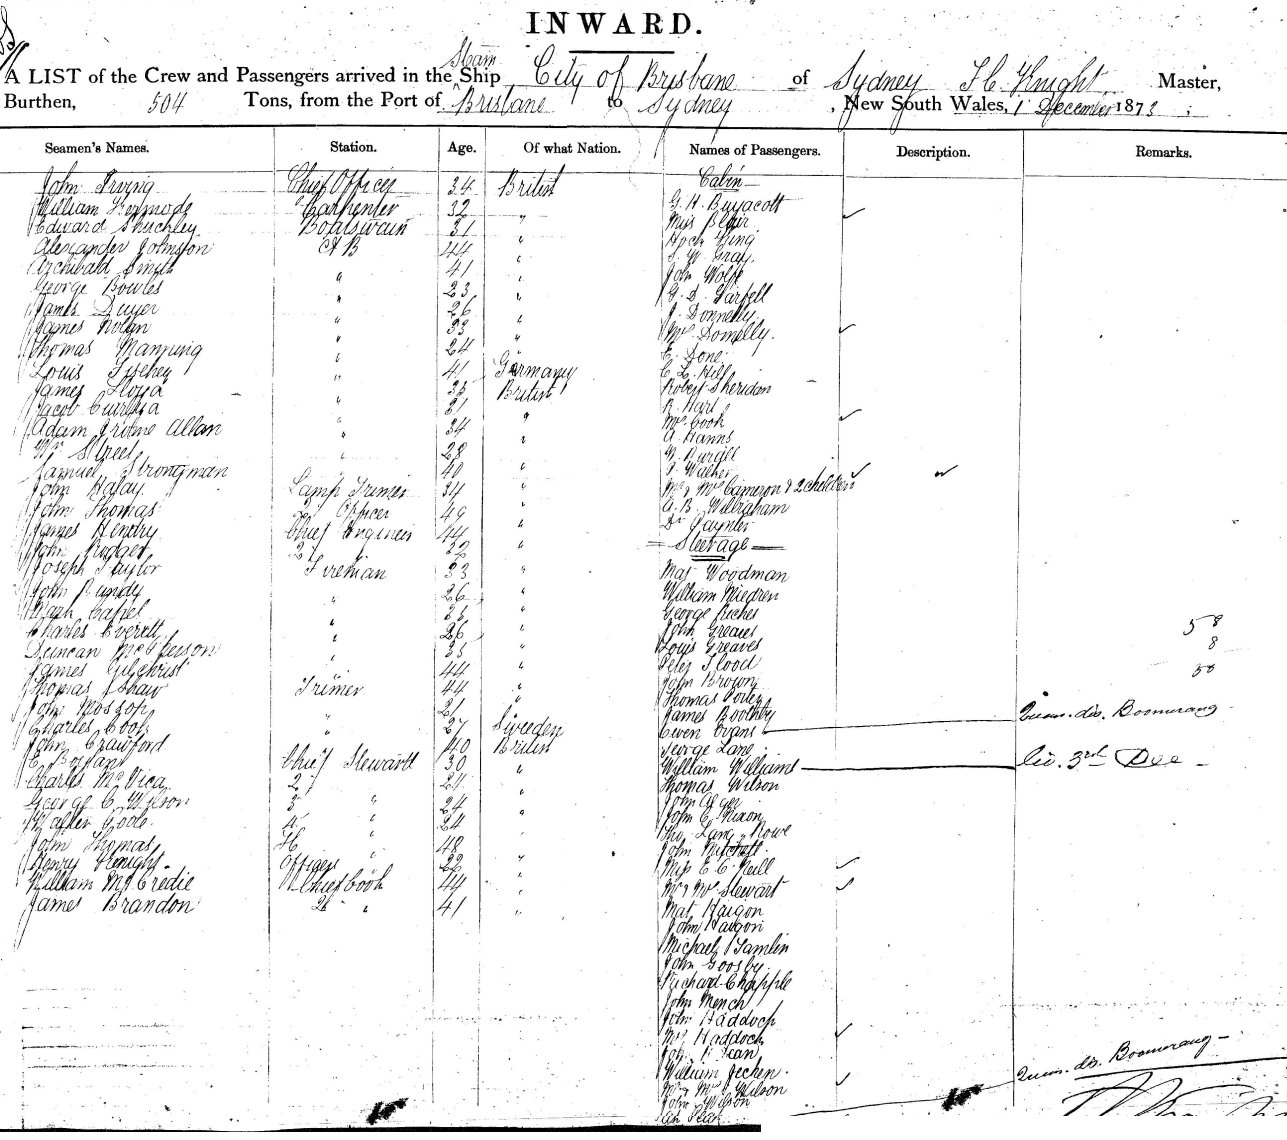 INWARD.
Steam
A LIST of the Crew and Passengers arrived in the Ship City of Brisbane of Sydney F C Knight Master,
Burthen, 504 Tons, from the Port of Brisbane to Sydney , New South Wales, 1 December 1873
Seamen's Names. Station. Age. Of what Nation. Names of Passengers. Description. Remarks.
John Irving Chief Officer 34 British Cabin
William Kermode Carpenter 32 " G. H. Buyacott
Edward Boatswain 31 " Miss Blair
Alexander Johnston A B 44 " Hock King
Archibald Smith " 41 " S. W. Gray
George Bowles " 23 " John Wolfe
James Dwyer " 26 " G. D.
James Nolan " 33 " J. Donnelly
Thomas Manning " 24 " Mrs Donnelly
Louis " 41 Germany E. Done
James Lloyd " 35 British C. L. Hill
Jacob " 21 " Robert Sheridan
Adam Allan " 34 " R. Hart
Wm Street " 28 " Mrs Cook
Samuel Strongman " 40 " A. Hanns
John Lamp Trimer 34 " W.
John Thomas 2 Officer 49 " Walker
James Hendry Chief Engineer 44 " Mr & Mrs Cameron & 2 children
John Rodger 2 " 32 " A. B. Wilbraham
Joseph Taylor Fireman 33 " Dr
John Pundy " 26 " Steerage
Hugh Capel " 25 " Mat Woodman
Charles Everett " 26 " William Miedren
Duncan McPherson " 35 " George Riches
James Gilchrist " 44 " John Greaves
Thomas Shaw Trimer 44 " Louis Greaves
John Mossop " 21 " Peter Flood
Charles Cook " 27 Sweden John Brown
John Crawford " 40 British Thomas
E. Chief Stewartt 30 " James Boothby
Charles McVica 2 " 24 " Owen Evans
George C. Wilson 3 " 24 " George Lane
Walter Coole 4 " 24 " William Williams
John Thomas " 48 " Thomas Wilson
Henry Knight Officers " 22 " John Alger
William McCredie Chief Cook 44 " John C. Nixon
James Brandon 2 " 41 " Thos Lang Rowe
John Mitchell
Miss E. C. Neill
Mr & Mrs Stewart
Mat Haigon
John Haigon
Michael Tamlin
John Goosby
Richard Chapple
John Mench
John Haddock
Mrs Haddock
William Jecken
Mr & Mrs Wilson
John Wilson
58
8
50
dis. Boomerang
3rd Dec
dis. Boomerang